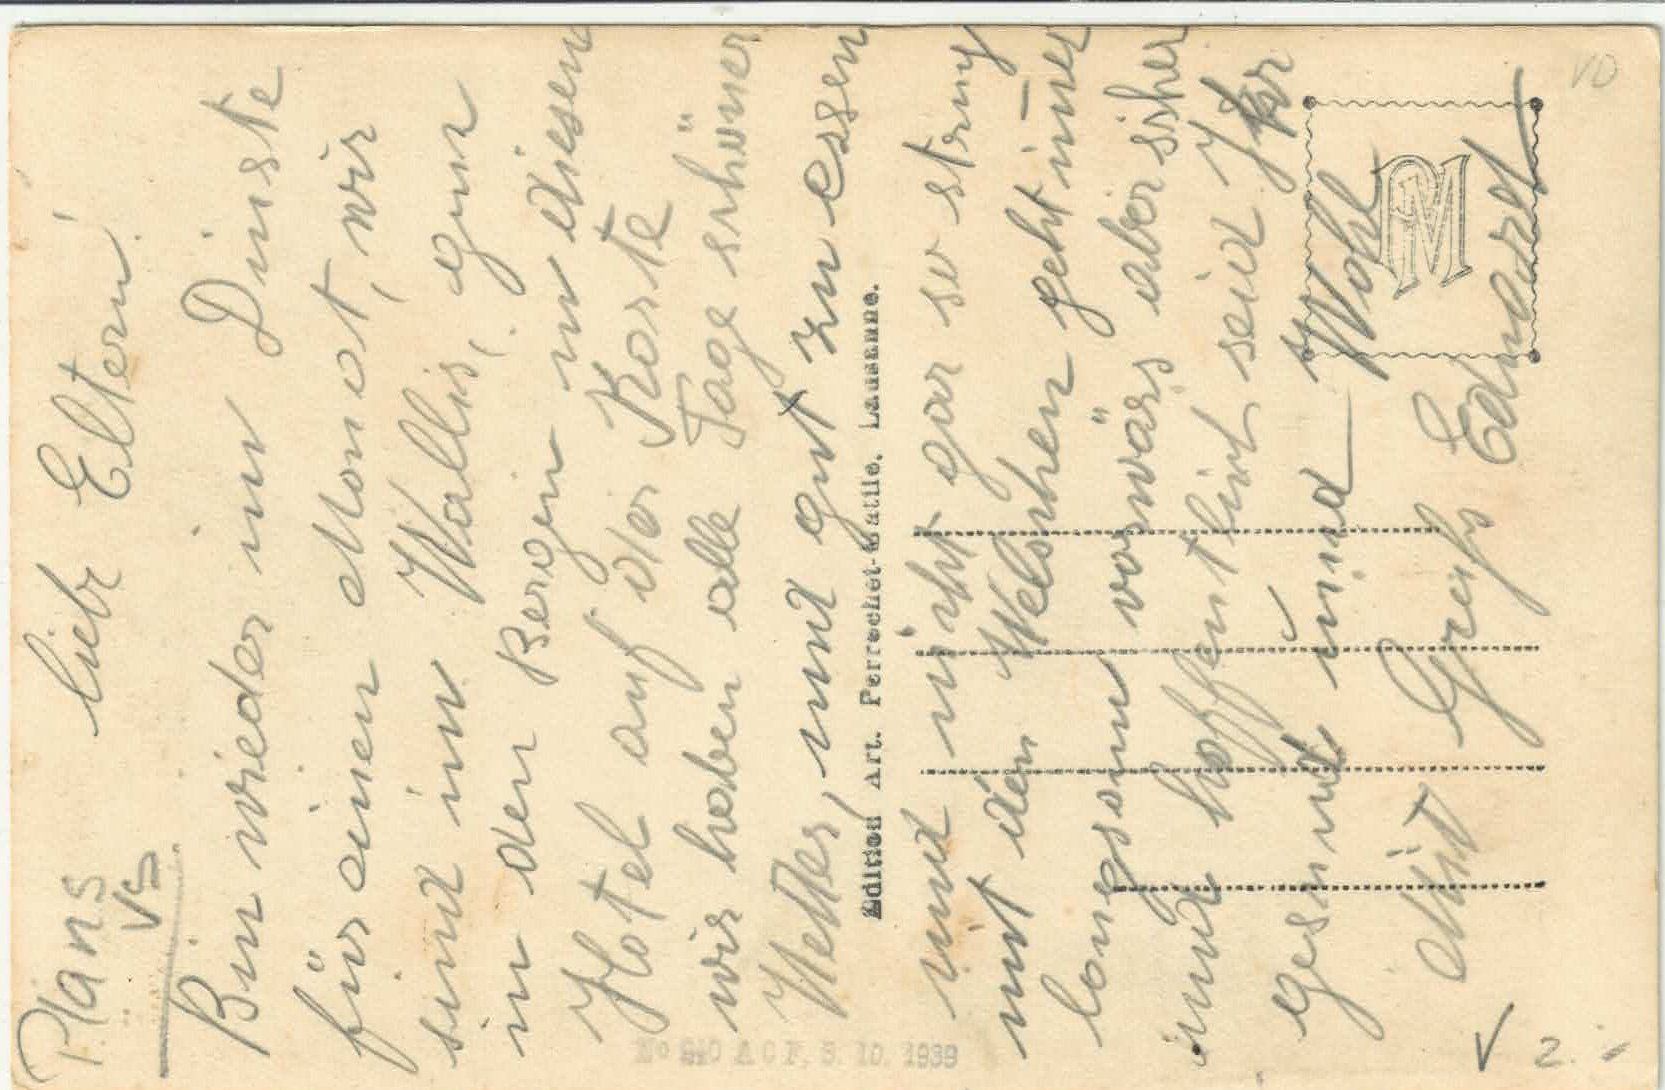 Plans
VS
lieb Eltern!
Bin wieder im Dinste
für einen Monat, wir
sind im Wallis, ganz
in den Bergen in diesem
Hotel auf der Karte
wir haben alle Tage schöner
Wetter, und gut zu essen
Edition Art. Perrochet-Matile. Lausanne.
und nicht gar so streng
mit den Welschen geht imer
langsam vorwärs aber sicher
und hoffentlich seid Ihr
gesund und Wohl
Mit Gruss Eduard
PM
No 940 A C F. 3. 10. 1939
VD
V 2.-